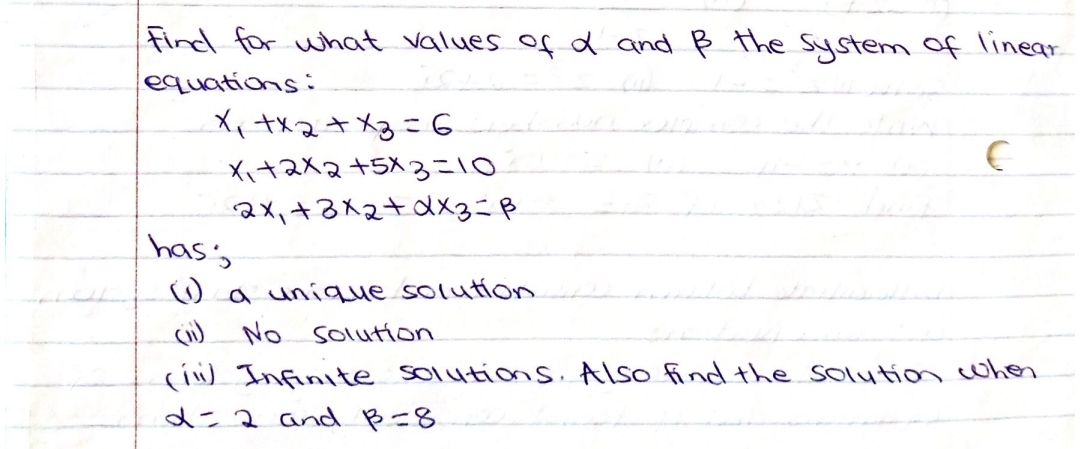 Find for what values of α and β the system of linear
equations:
x₁ + x₂ + x₃ = 6
x₁ + 2x₂ + 5x₃ = 10
2x₁ + 3x₂ + αx₃ = β
has;
(i) a unique solution
(ii) No solution
(iii) Infinite solutions. Also find the solution when
α = 2 and β = 8